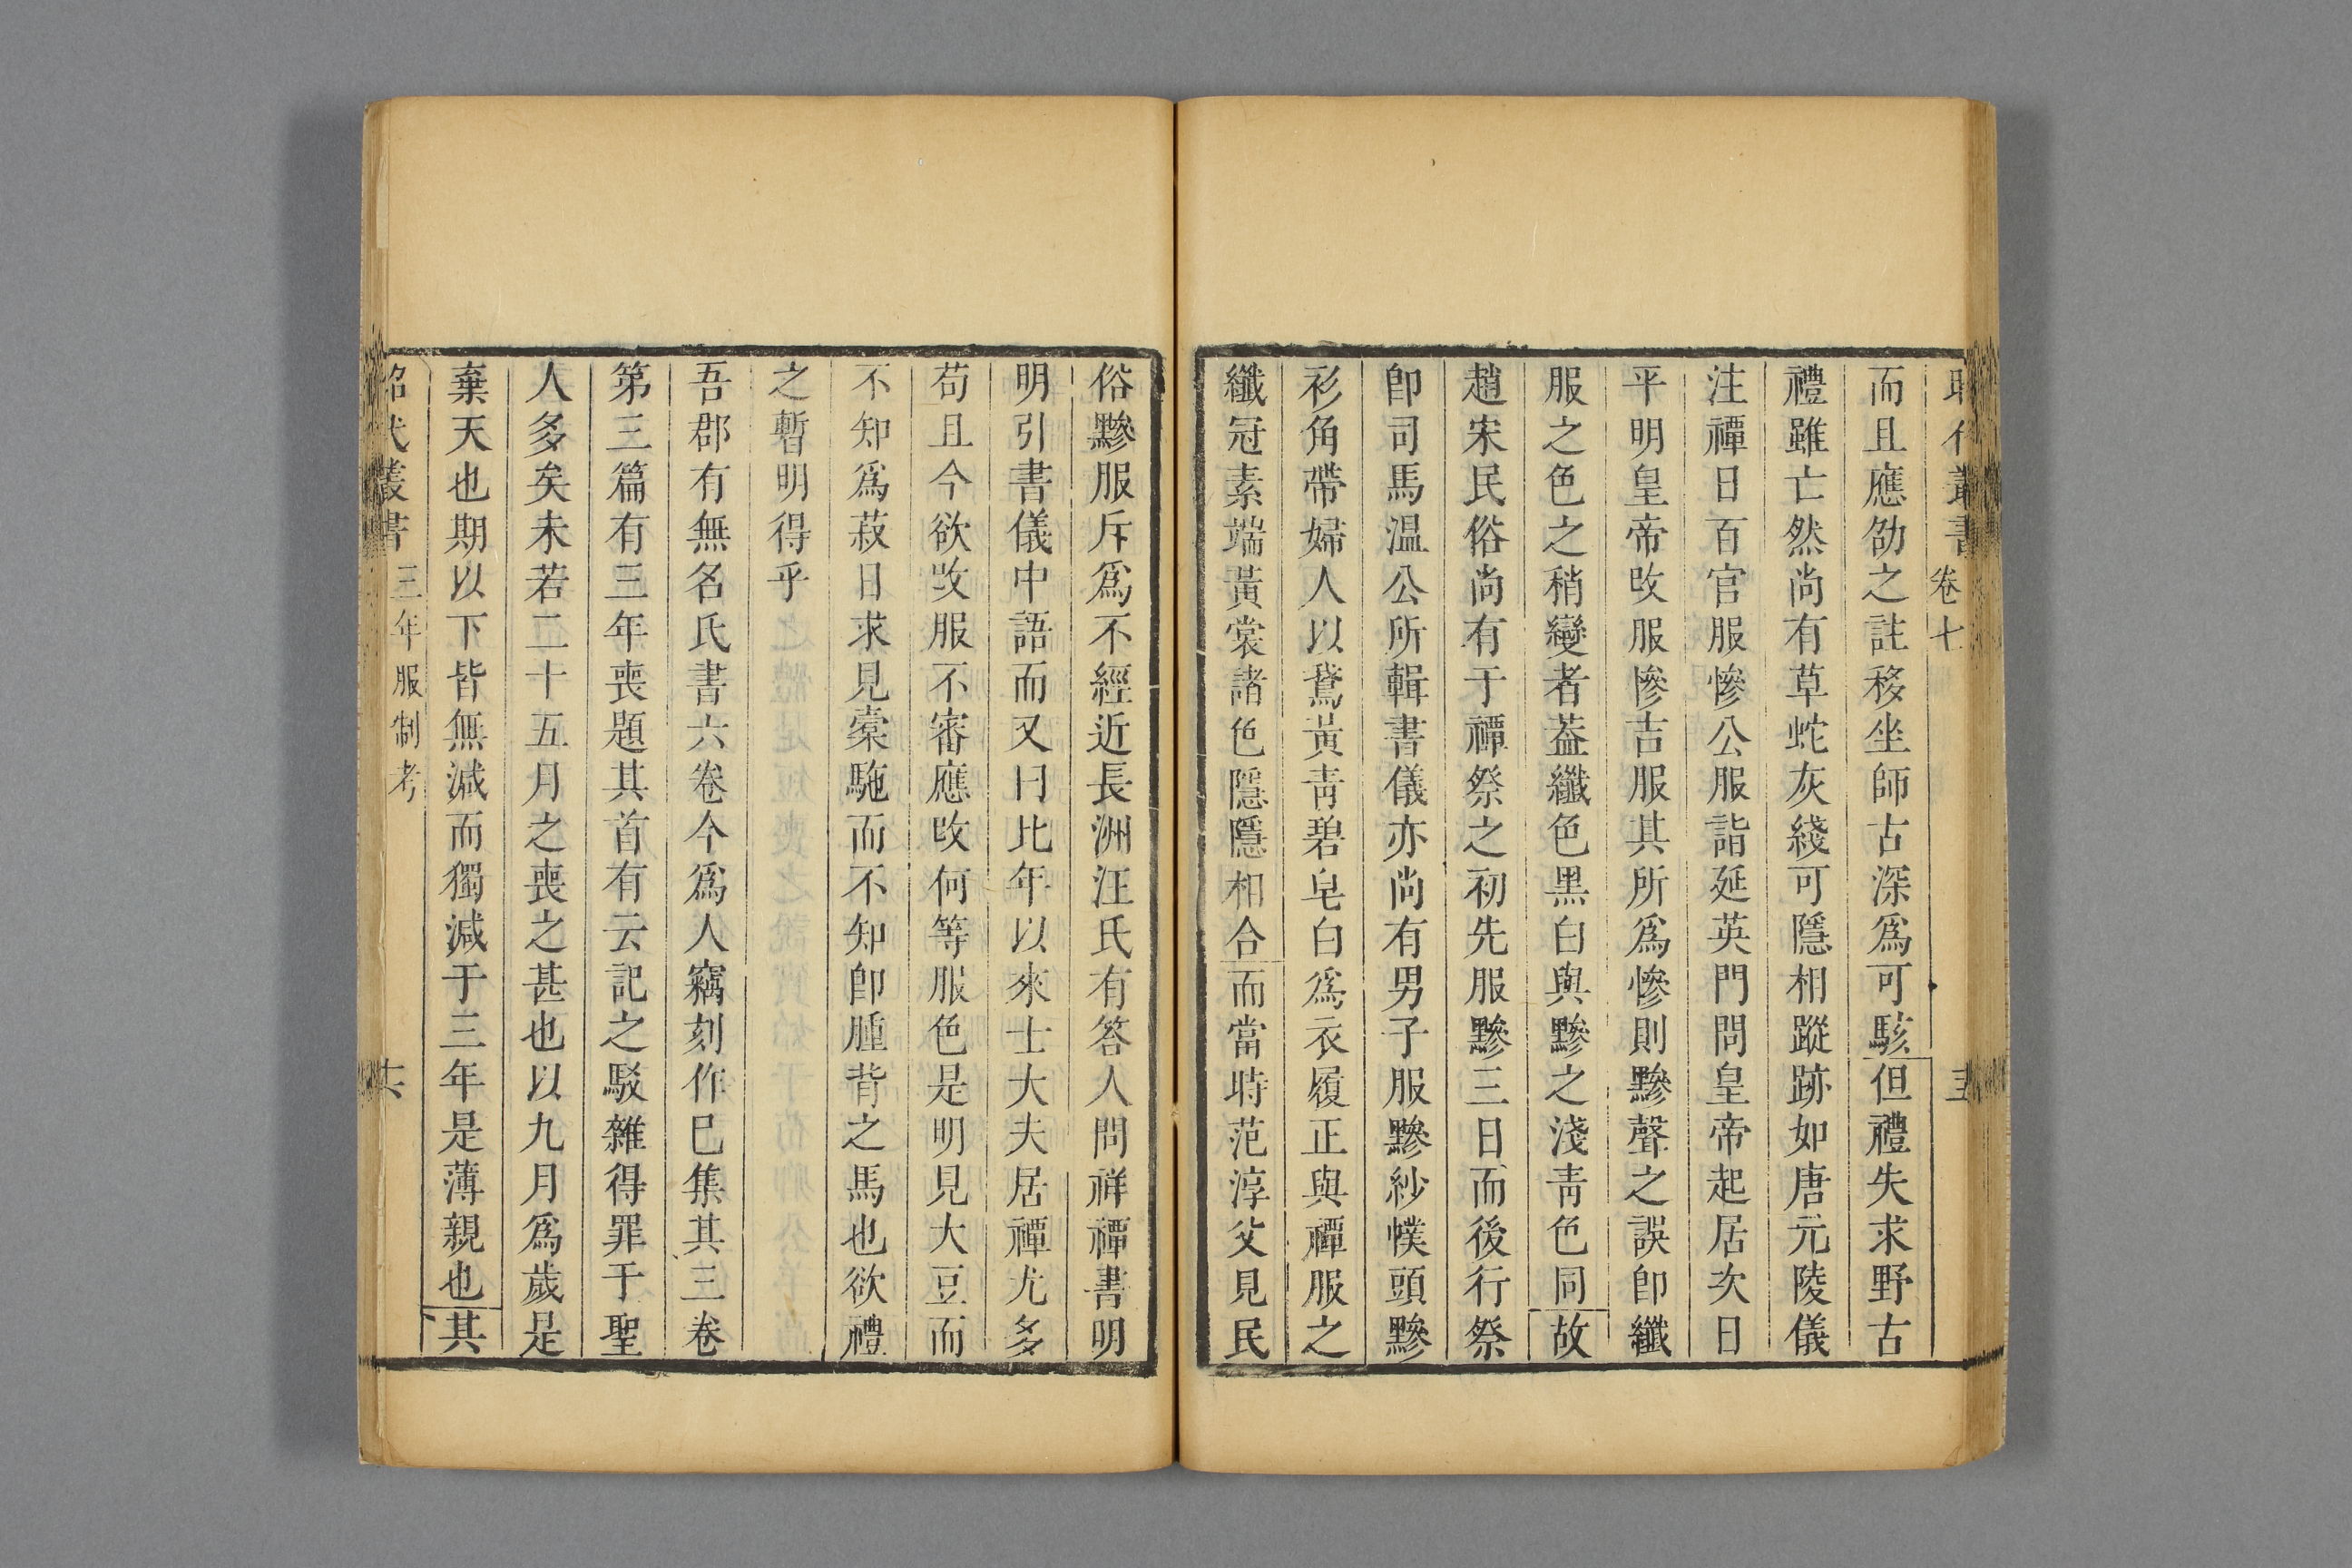 昭代叢書 卷七
而且應劭之註移坐師古深爲可駭但禮失求野古
禮雖亡然尚有草蛇灰綫可隱相蹤跡如唐元陵儀
注禫日百官服慘公服詣延英門問皇帝起居次日
平明皇帝改服慘吉服其所爲慘則黲聲之誤卽纖
服之色之稍變者葢纖色黑白與黲之淺靑色同故
趙宋民俗尚有于禫祭之初先服黲三日而後行祭
卽司馬溫公所輯書儀亦尚有男子服黲紗幞頭黲
衫角帶婦人以鵞黃靑碧皂白爲衣履正與禫服之
纖冠素端黃裳諸色隱隱相合而當時范淳父見民
俗黲服斥爲不經近長洲汪氏有答人問祥禫書明
明引書儀中語而又曰比年以來士大夫居禫尤多
苟且今欲改服不審應改何等服色是明見大豆而
不知爲菽日求見橐駞而不知卽腫背之馬也欲禮
之暫明得乎
吾郡有無名氏書六卷今爲人竊刻作巳集其三卷
第三篇有三年喪題其首有云記之駁雜得罪于聖
人多矣未若二十五月之喪之甚也以九月爲歲是
棄天也期以下皆無減而獨減于三年是薄親也其
昭代叢書 三年服制考